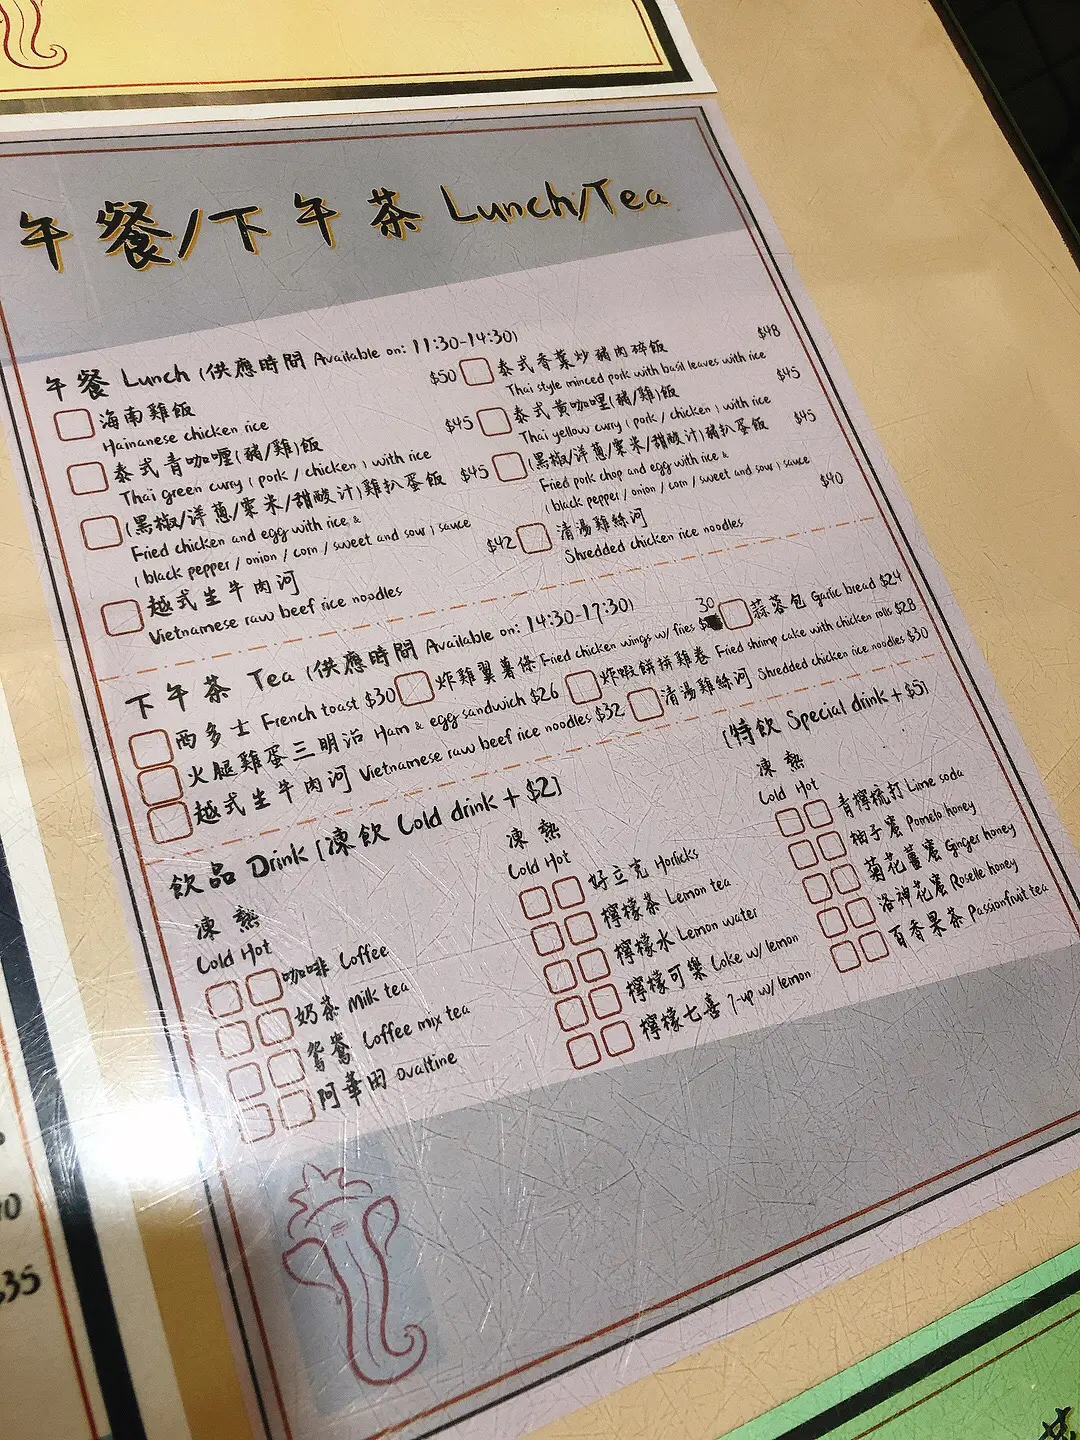 午餐/下午茶 Lunch/Tea
午餐 Lunch (供應時間 Available on: 11:30-14:30)
海南雞飯 $50
Hainanese chicken rice
泰式青咖喱(豬/雞)飯 $45
Thai green curry ( pork / chicken ) with rice
(黑椒/洋蔥/粟米/甜酸汁)雞扒蛋飯 $45
Fried chicken and egg with rice &
( black pepper / onion / corn / sweet and sour ) sauce
越式生牛肉河 $42
Vietnamese raw beef rice noodles
泰式香葉炒豬肉碎飯 $48
Thai style minced pork with basil leaves with rice
泰式黃咖喱(豬/雞)飯 $45
Thai yellow curry ( pork / chicken ) with rice
(黑椒/洋蔥/粟米/甜酸汁)豬扒蛋飯 $45
Fried pork chop and egg with rice &
( black pepper / onion / corn / sweet and sour ) sauce
清湯雞絲河 $40
Shredded chicken rice noodles
下午茶 Tea (供應時間 Available on: 14:30-17:30)
西多士 French toast $30 炸雞翼薯條 Fried chicken wings w/ fries $30 蒜蓉包 Garlic bread $24
火腿雞蛋三明治 Ham & egg sandwich $26 炸蝦餅拼雞卷 Fried shrimp cake with chicken rolls $28
越式生牛肉河 Vietnamese raw beef rice noodles $32 清湯雞絲河 Shredded chicken rice noodles $30
飲品 Drink [凍飲 Cold drink + $2]
凍 熱
Cold Hot
咖啡 Coffee
奶茶 Milk tea
鴛鴦 Coffee mix tea
阿華田 Ovaltine
凍 熱
Cold Hot
好立克 Horlicks
檸檬茶 Lemon tea
檸檬水 Lemon water
檸檬可樂 Coke w/ lemon
檸檬七喜 7-up w/ lemon
[特飲 Special drink + $5]
凍 熱
Cold Hot
青檸梳打 Lime soda
柚子蜜 Pomelo honey
菊花薑蜜 Ginger honey
洛神花蜜 Roselle honey
百香果茶 Passionfruit tea